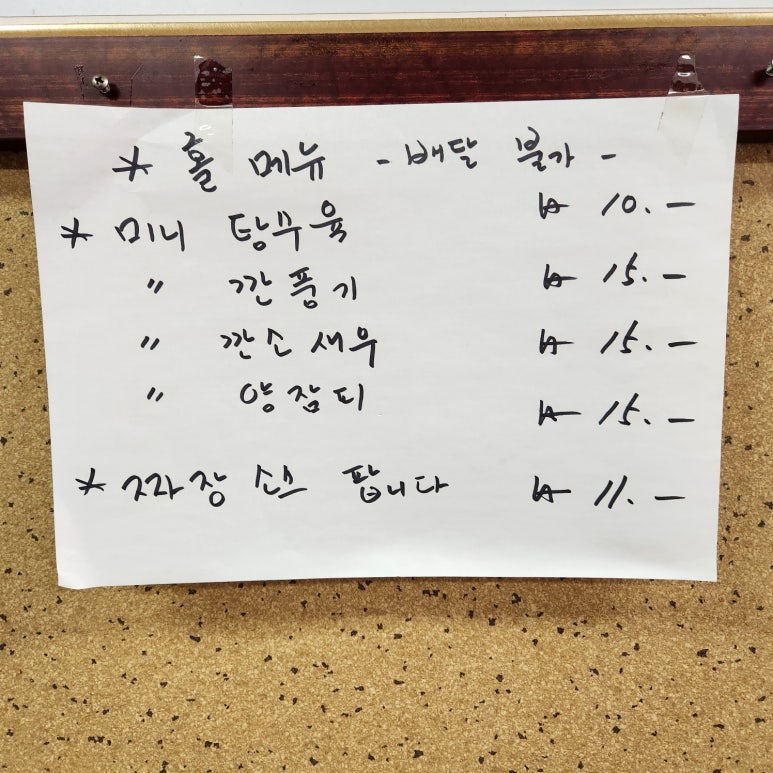 * 홀 메뉴 - 배달 불가 -
* 미니 탕수육 ₩ 10.-
〃 깐풍기 ₩ 15.-
〃 깐소새우 ₩ 15.-
〃 양잠피 ₩ 15.-
* 짜장 소스 팝니다 ₩ 11.-